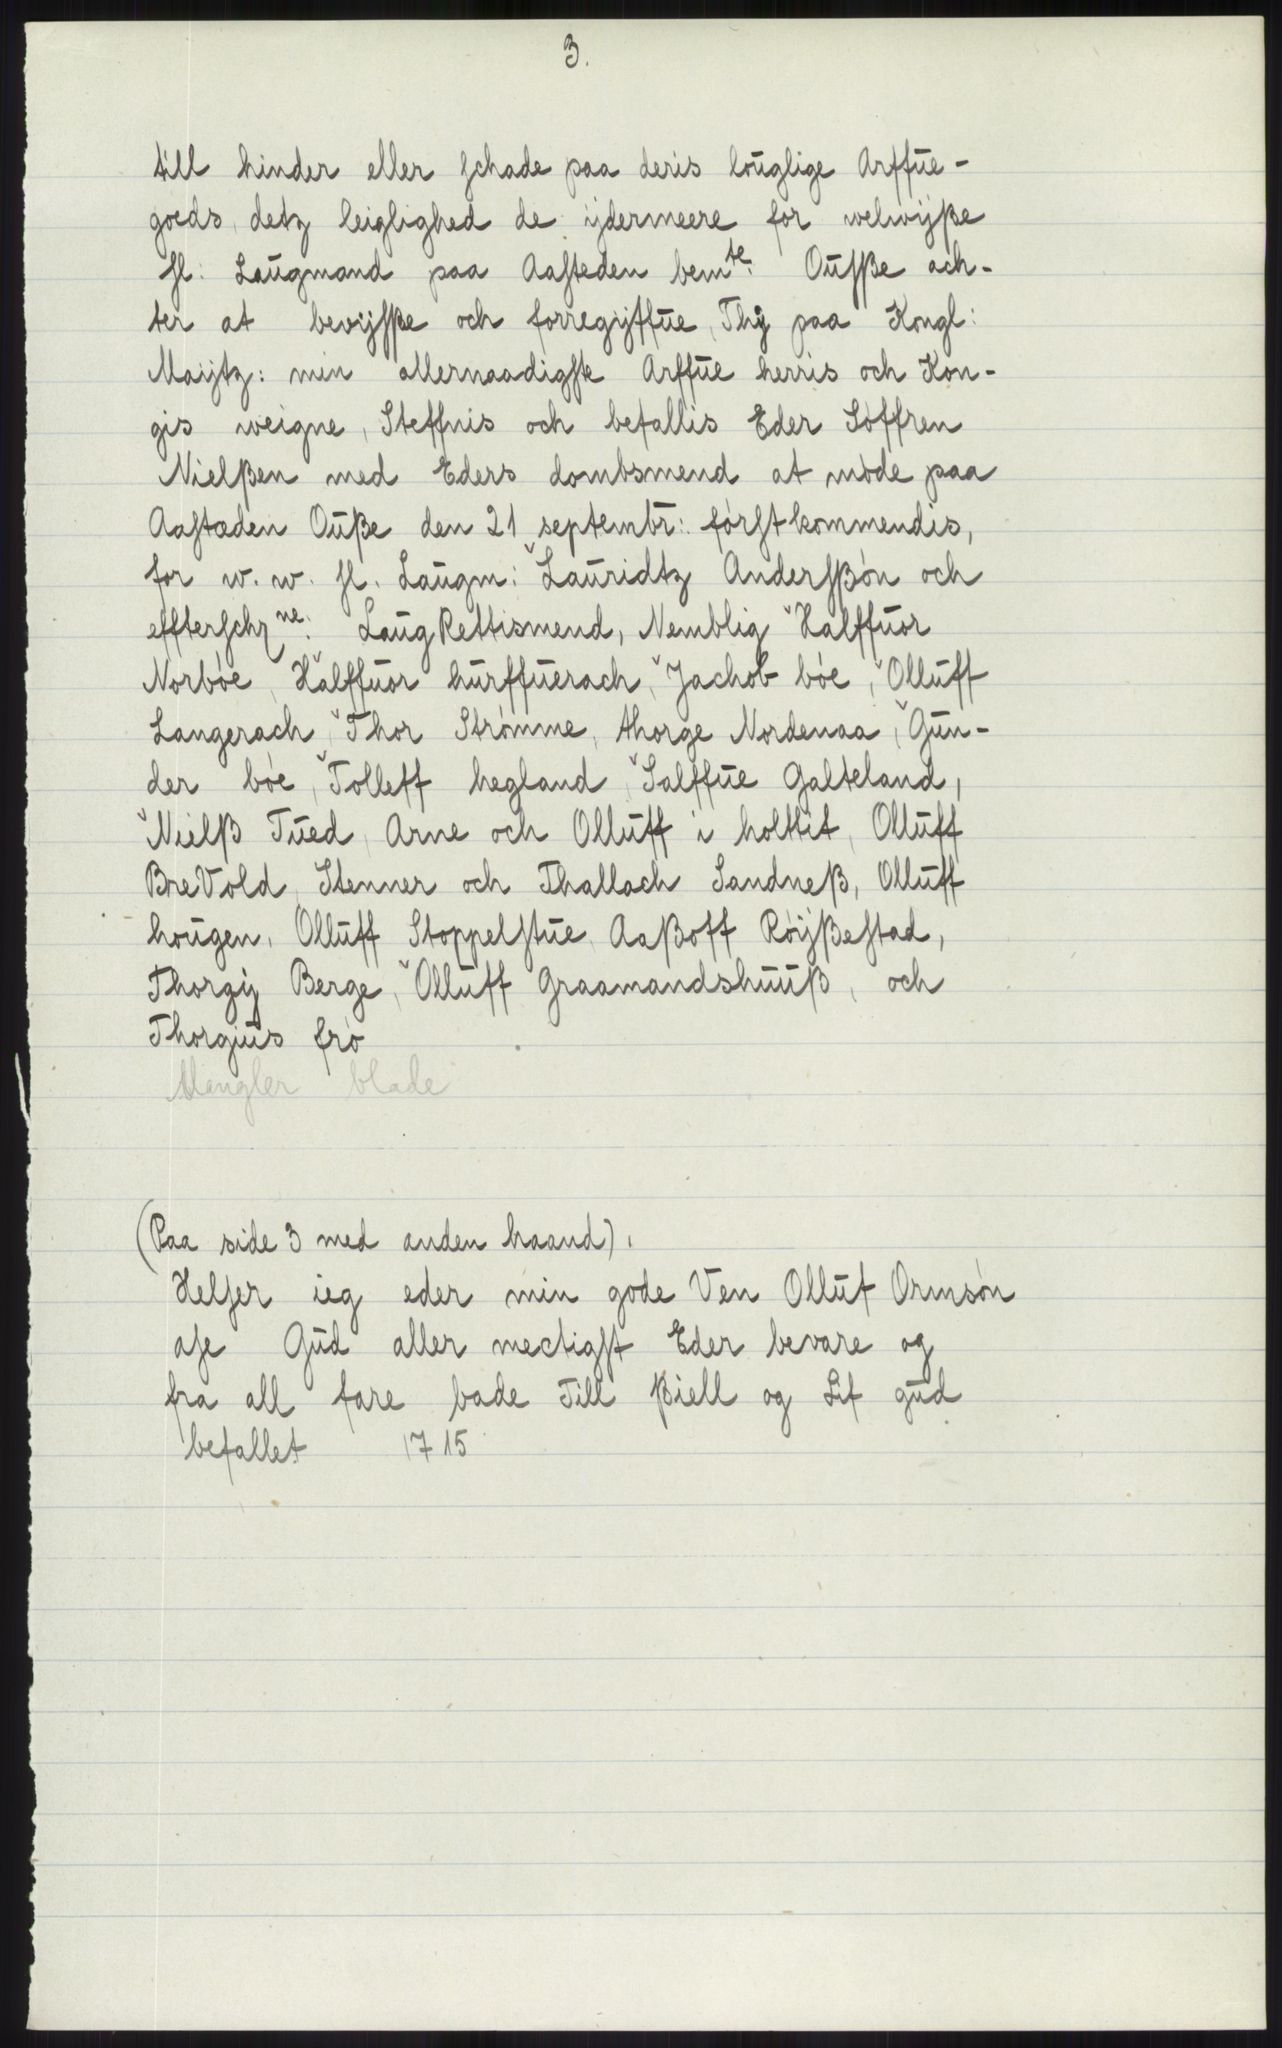 3.
till hinder eller schade paa deris louglige Arffue-
goeds, detz leiglighed de ijdermeere for welwijße
Hl: Laugmand paa Aasteden bemte: Oufße ach-
ter at bevijsße och forregijffue, Thij paa Kongl:
Maijtz: min allernaadigste Arffue herris och Kon-
gis weigne, Steffnis och befallis Eder Søffren
Nielßen med Eders dombsmend at møde paa
Aastæden Oußе den 21 septembr: førstkommendis,
for w. w. Hl. Laugm: Lauridtz Andersßøn och
effterschrne: LaugRettismend, Nemblig Halffuor
Norbøe, Halffuor hurffuerach, Jachob bøe, Olluff
Langerach, Thor Strømme, thorge Nordenaa, Gun-
der bøe, Tolleff hegland, Salffue Galteland,
Nielß Tued, Arne och Olluff i holttit, Olluff
BreVold, Stenner och Thallach Sandneß, Olluff
hougen, Olluff Stoppelstue, Aaßoff Røijßestad,
Thorgij Berge, Olluff Graamandshuuß, och
Thorgius frø
Mangler blade
(Paa side 3 med anden haand).
Helser ieg eder min gode Ven Olluf Ormsøn
ase Gud aller mectigst Eder bevare og
fra all fare bade Till ßiell og Lif gud
befallet 1715